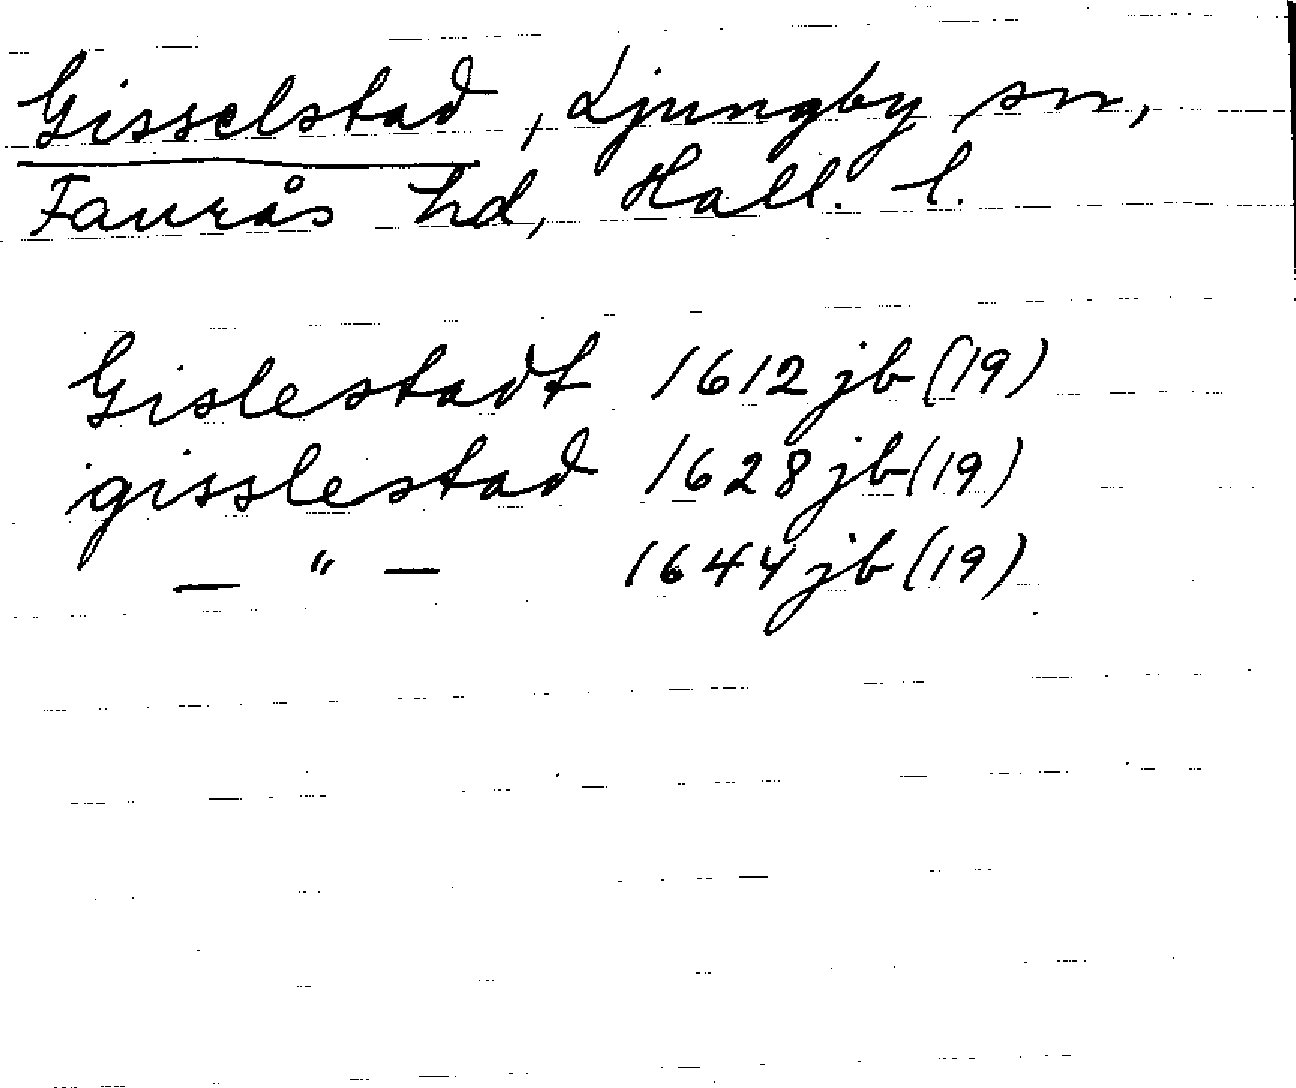 Gisselstad, Ljungby sn,
Faurås hd, Hall. l.
Gislestadt 1612 jb (19)
gisslestad 1628 jb (19)
— " — 1644 jb (19)